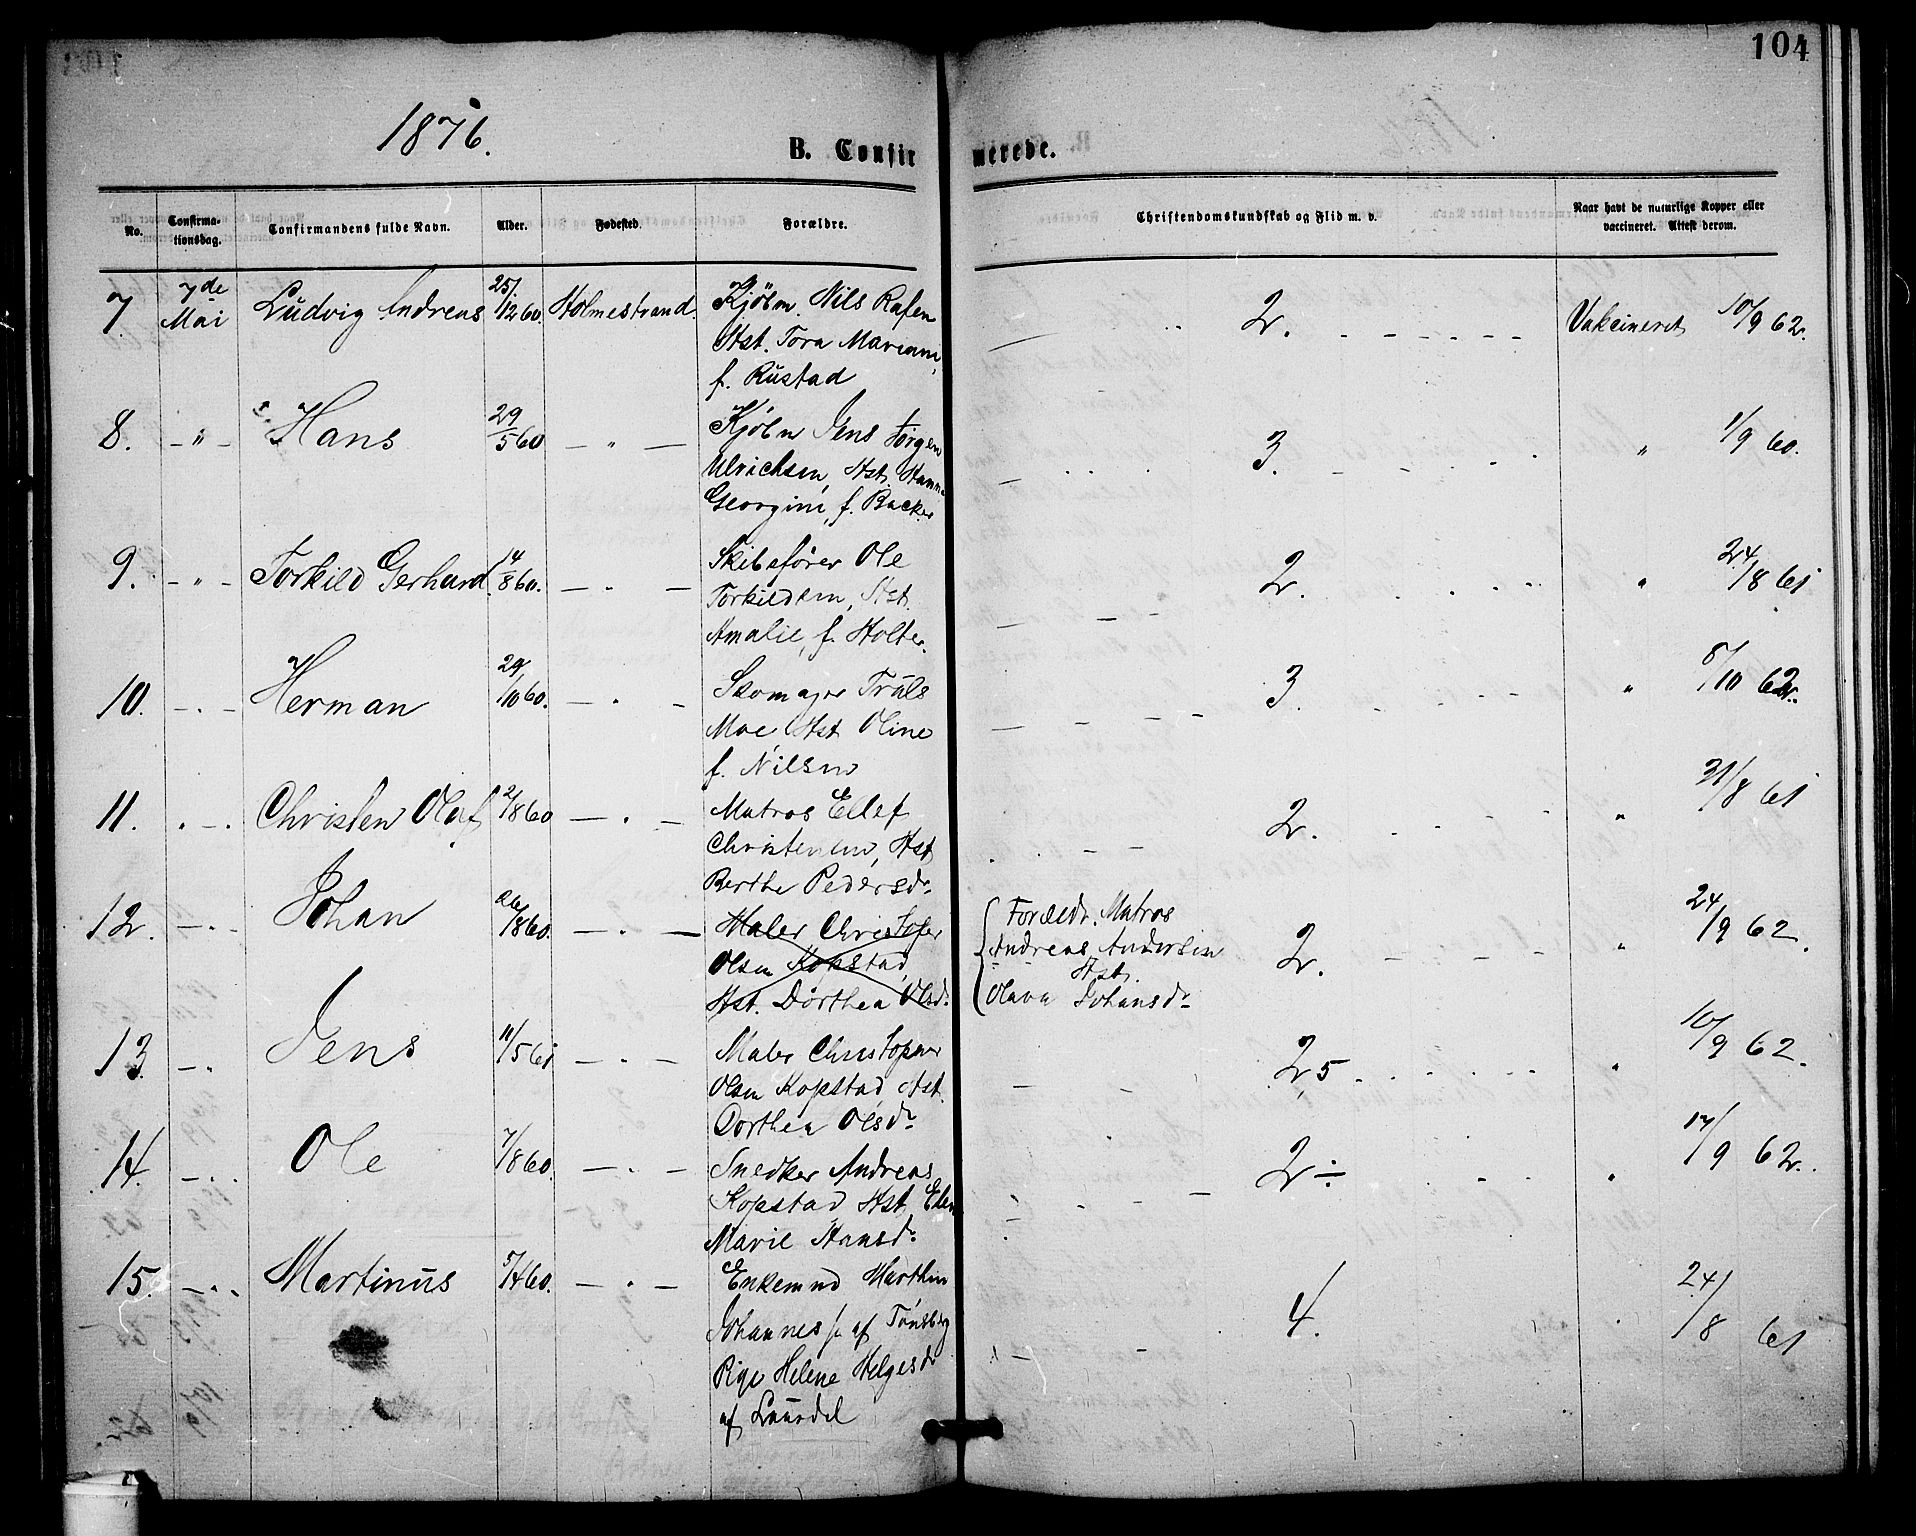 104
1876.
B. Confirmerede.
No. Confirmationsdag. Confirmandens fulde Navn. Alder. Fødested. Forældre. Christendomskundskab og Flid m. v. Naar havt de naturlige Kopper eller vaccineret. Attest derom.
7. 7de Mai Ludvig Andreas 25/12 60. Holmestrand. Kjöbm. Nils Rafen 2. Vakcineret 10/9 62.
Hst. Tora Mariane,
f. Rustad
8. - " - Hans 29/5 60 - " - Kjöbm Jens Jörgen 3. " 1/9 60.
Ulrichsen, Hst. Hanna
Georgine, f. Backer
9. - " - Torkild Gerhard 14/8 60. - " - Skibsfører Ole 2. " 24/8 61
Torkildsen, Hst.
Amalie, f. Holter.
10. - " - Herman 29/10 60. - " - Skomager Truls 3. " 8/10 62.
Moe Hst. Oline
f. Nilsen
11. " - " Christen Olaf 2/8 60 - " - Matros Ellef 2. " 31/8 61
Christensen, Hst
Berthe Pedersdr.
12. - " - Johan 26/8 60. - " - Maler Christofer { Forældr. Matros 2. " 24/9 62.
Olsen Kopstad, Andreas Andersen
Hst. Dorthea Olsdr. Hst.
Olava Johansdr
13. - " Jens 11/5 61 - " - Maler Christopher 2,5 " 10/9 62.
Olsen Kopstad, Hst.
Dorthea Olsdr
14. - " Ole 7/8 60. - " - Snedker Andreas 2 ÷ " 17/9 62.
Kopstad Hst. Elen
Marie Hansdr
15. - " Martinus 5/4 60. - " - Enkemand Marthin 4. 24/8 61
Johannes af Tønsberg
Pige Helene Helgesdr
af Laurdal